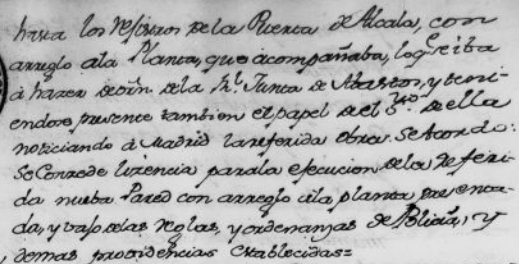 hasta los Rexistros de la Puerta de Alcala, con
arreglo ala Planta, que acompañaba, loq.e iba
á hazer deorn. dela Rl. Junta de Abastos, y teni-
endose presente tambien el papel del S.rio de ella
noticiando á Madrid lareferida obra: Se Acordó:
Se Conzede lizencia parala efecucion dela Referi-
da nueba Pared con arreglo ála planta presenta-
da, y bajo delas Reglas, y ordenanzas de Policia, y
demas providencias establecidas=